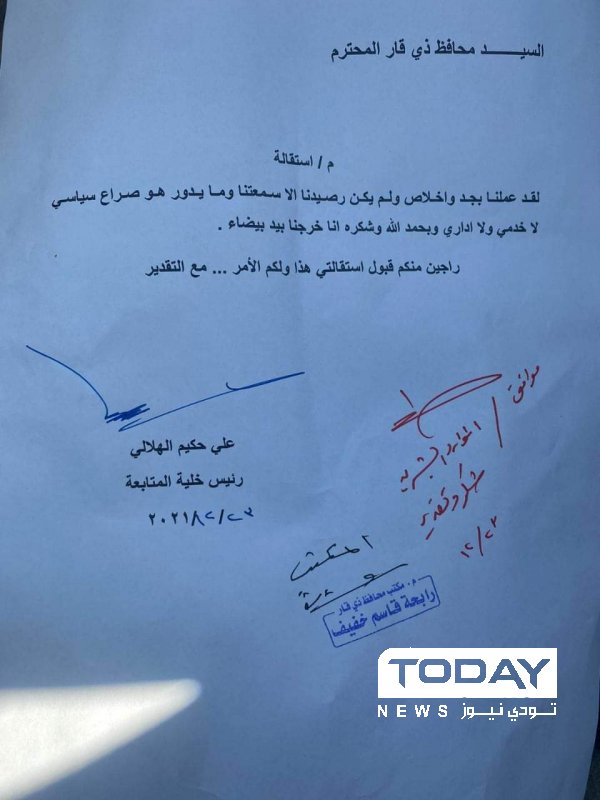 السيـــــــد محافظ ذي قار المحترم
م / استقالة
لقد عملنا بجد واخلاص ولم يكن رصيدنا الا سمعتنا وما يدور هو صراع سياسي
لا خدمي ولا اداري وبحمد الله وشكره انا خرجنا بيد بيضاء .
راجين منكم قبول استقالتي هذا ولكم الأمر ... مع التقدير
علي حكيم الهلالي
رئيس خلية المتابعة
موافق /
الموارد البشرية
شكر وتقدير
١٢/٢٣
المكتب
م. مكتب محافظ ذي قار
رابعة قاسم خفيف
TODAY
NEWS تودي نيوز